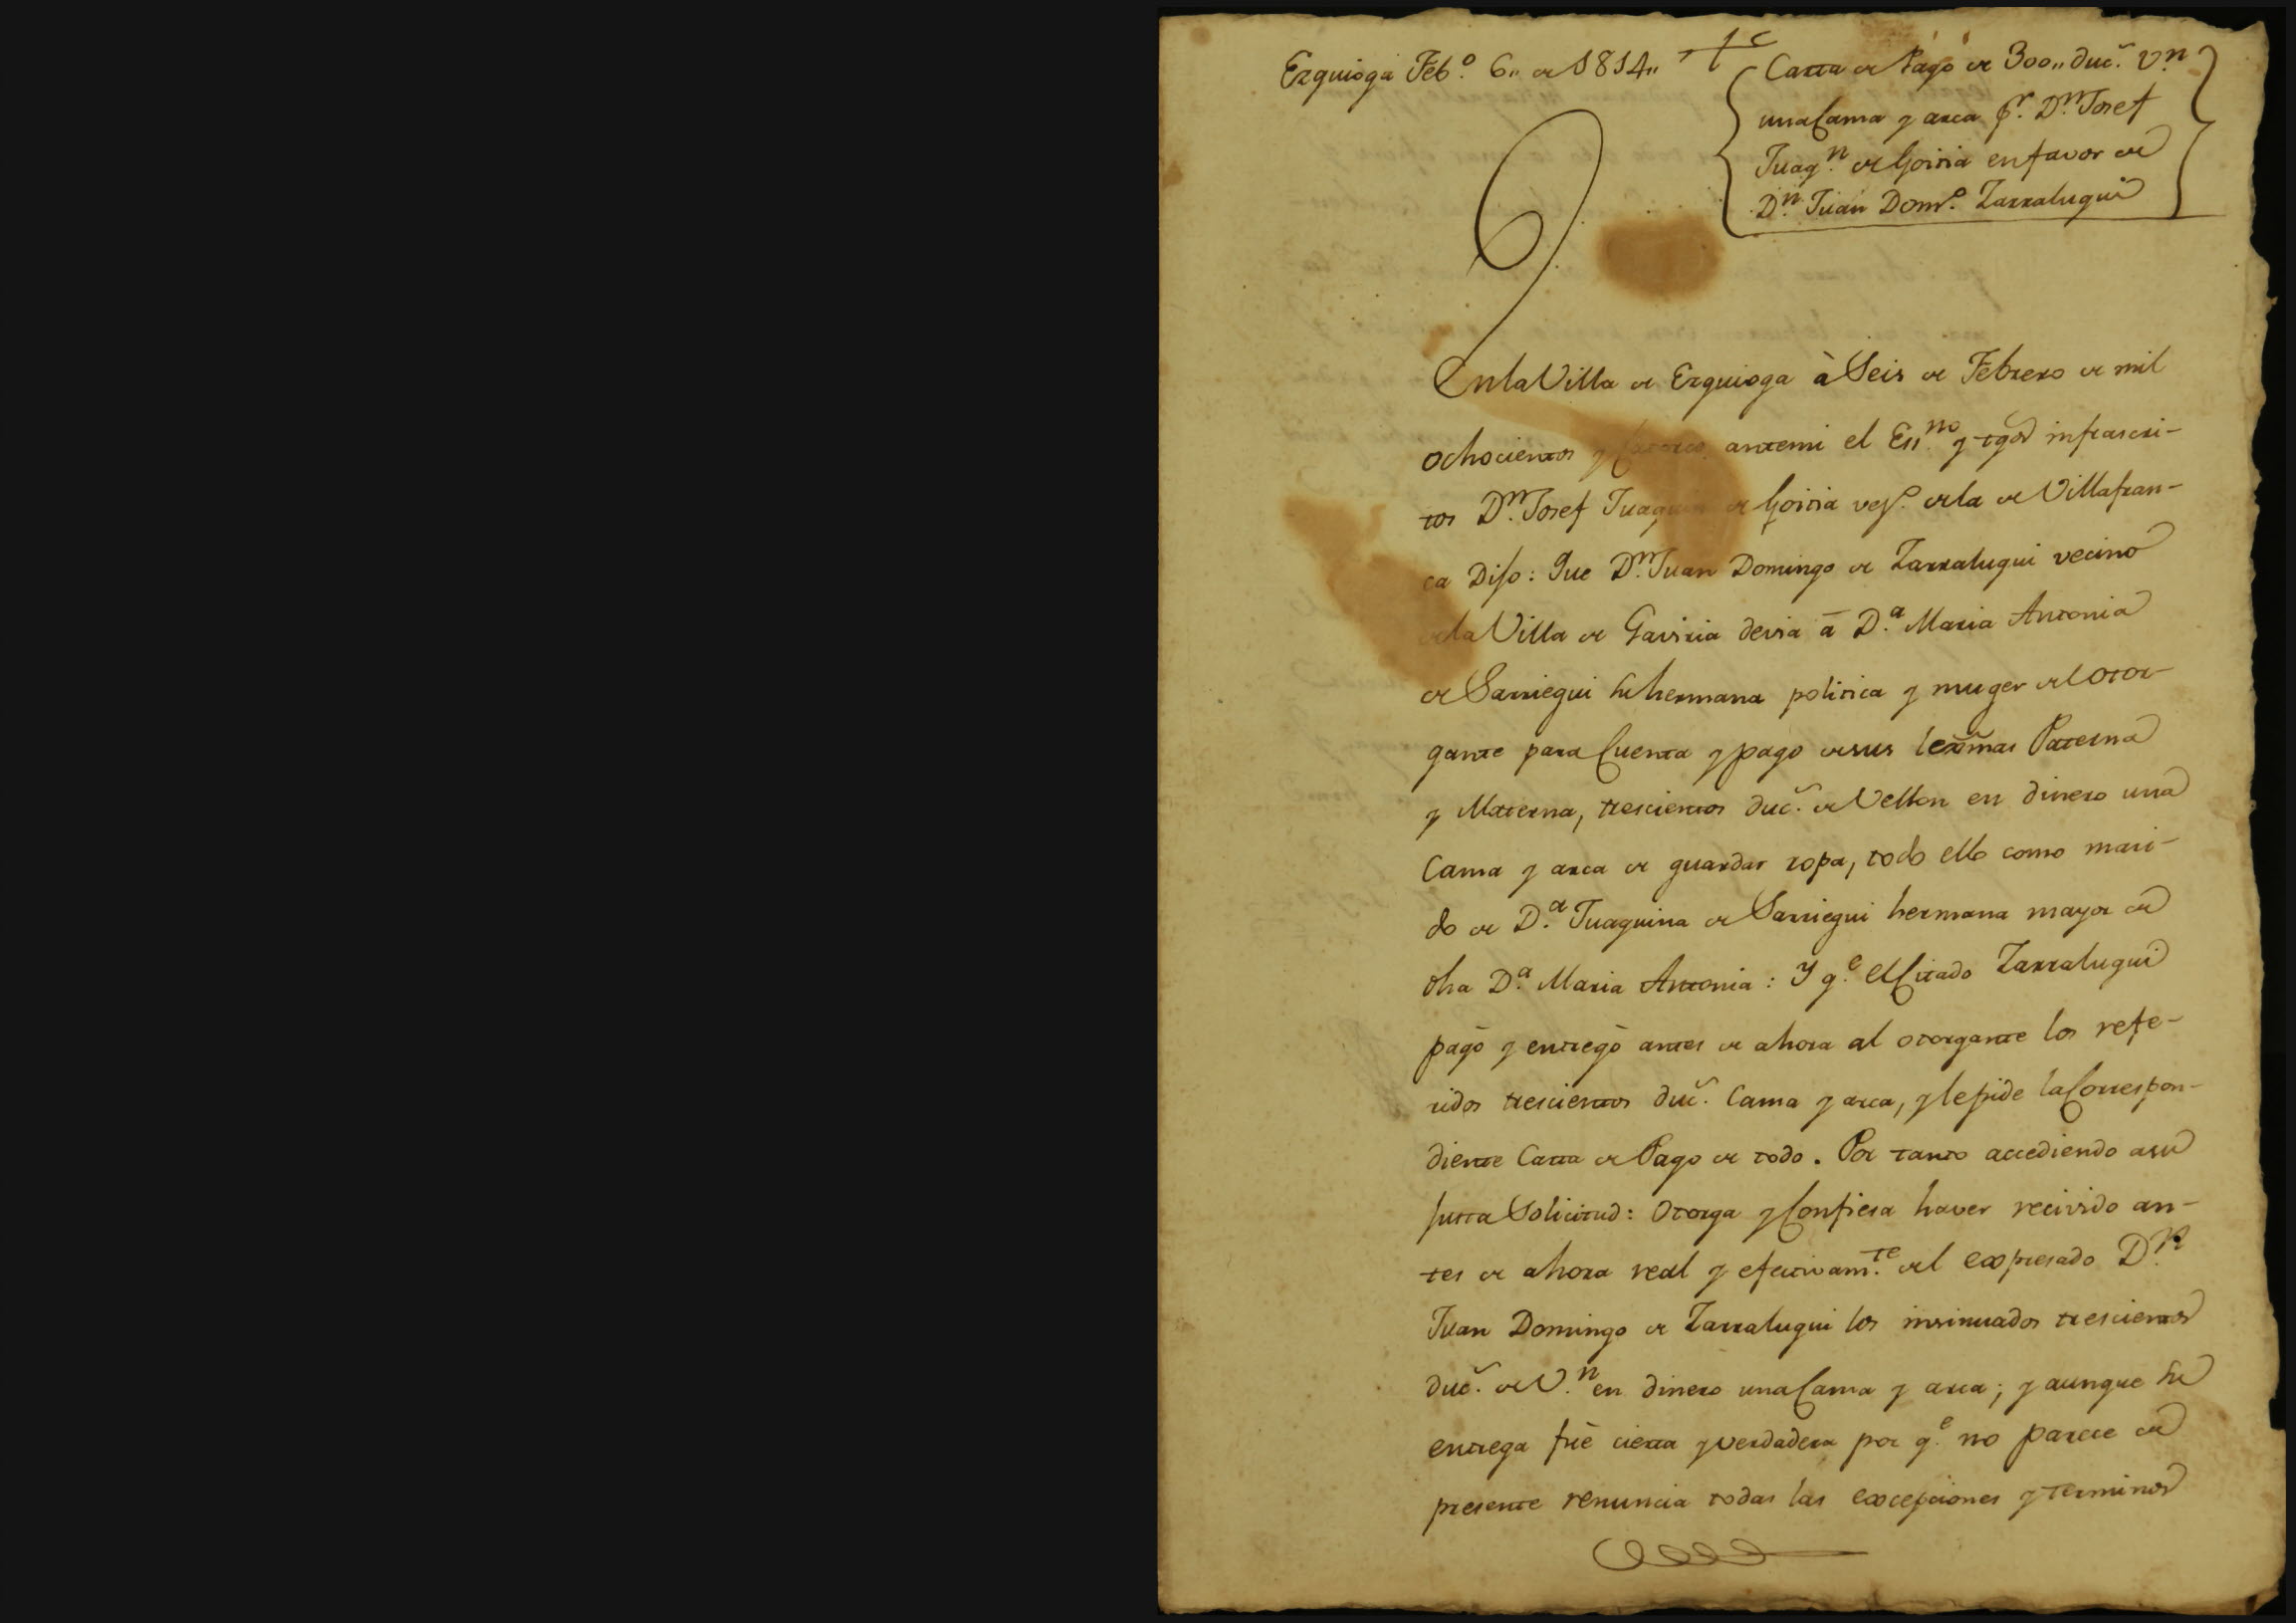 Ezquioga Feb.º 6,, de 1814,,
Carta de Pago de 300,, duc.ˢ V.n
una Cama y arca p.r D.n Josef
Juaq.n de Goiria en favor de
D.n Juan Dom.º Zarralugui
En la Villa de Ezquioga à Seis de Febrero de mil
ochocientos y Catorce, antemi el Ess.no y tgos infrascri-
tos D.n Josef Juaquin de Goiria vez.º de la de Villafran-
ca Dijo: Que D.n Juan Domingo de Zarralugui vecino
de la Villa de Gaviria devia à D.a Maria Antonia
de Sarriegui su hermana politica y muger del otor-
gante para Cuenta y pago de sus lexmas Paterna
y Materna, trescientos duc.ˢ de Vellon en dinero una
Cama y arca de guardar ropa, todo ello como mari-
do de D.a Juaquina de Sarriegui hermana mayor de
dha D.a Maria Antonia: Y q.e el Citado Zarralugui
pagò y entregò antes de ahora al otorgante los refe-
ridos trescientos duc.ˢ Cama y arca, y le pide la Correspon-
diente Carta de Pago de todo. Por tanto accediendo a su
justa Solicitud: Otorga y Confiesa haver recivido an-
tes de ahora real y efectivam.te del expresado D.n
Juan Domingo de Zarralugui los insinuados trescientos
duc.ˢ de V.n en dinero una Cama y arca; y aunque su
entrega fuè cierta y verdadera por q.e no parece de
presente renuncia todas las excepciones y terminos